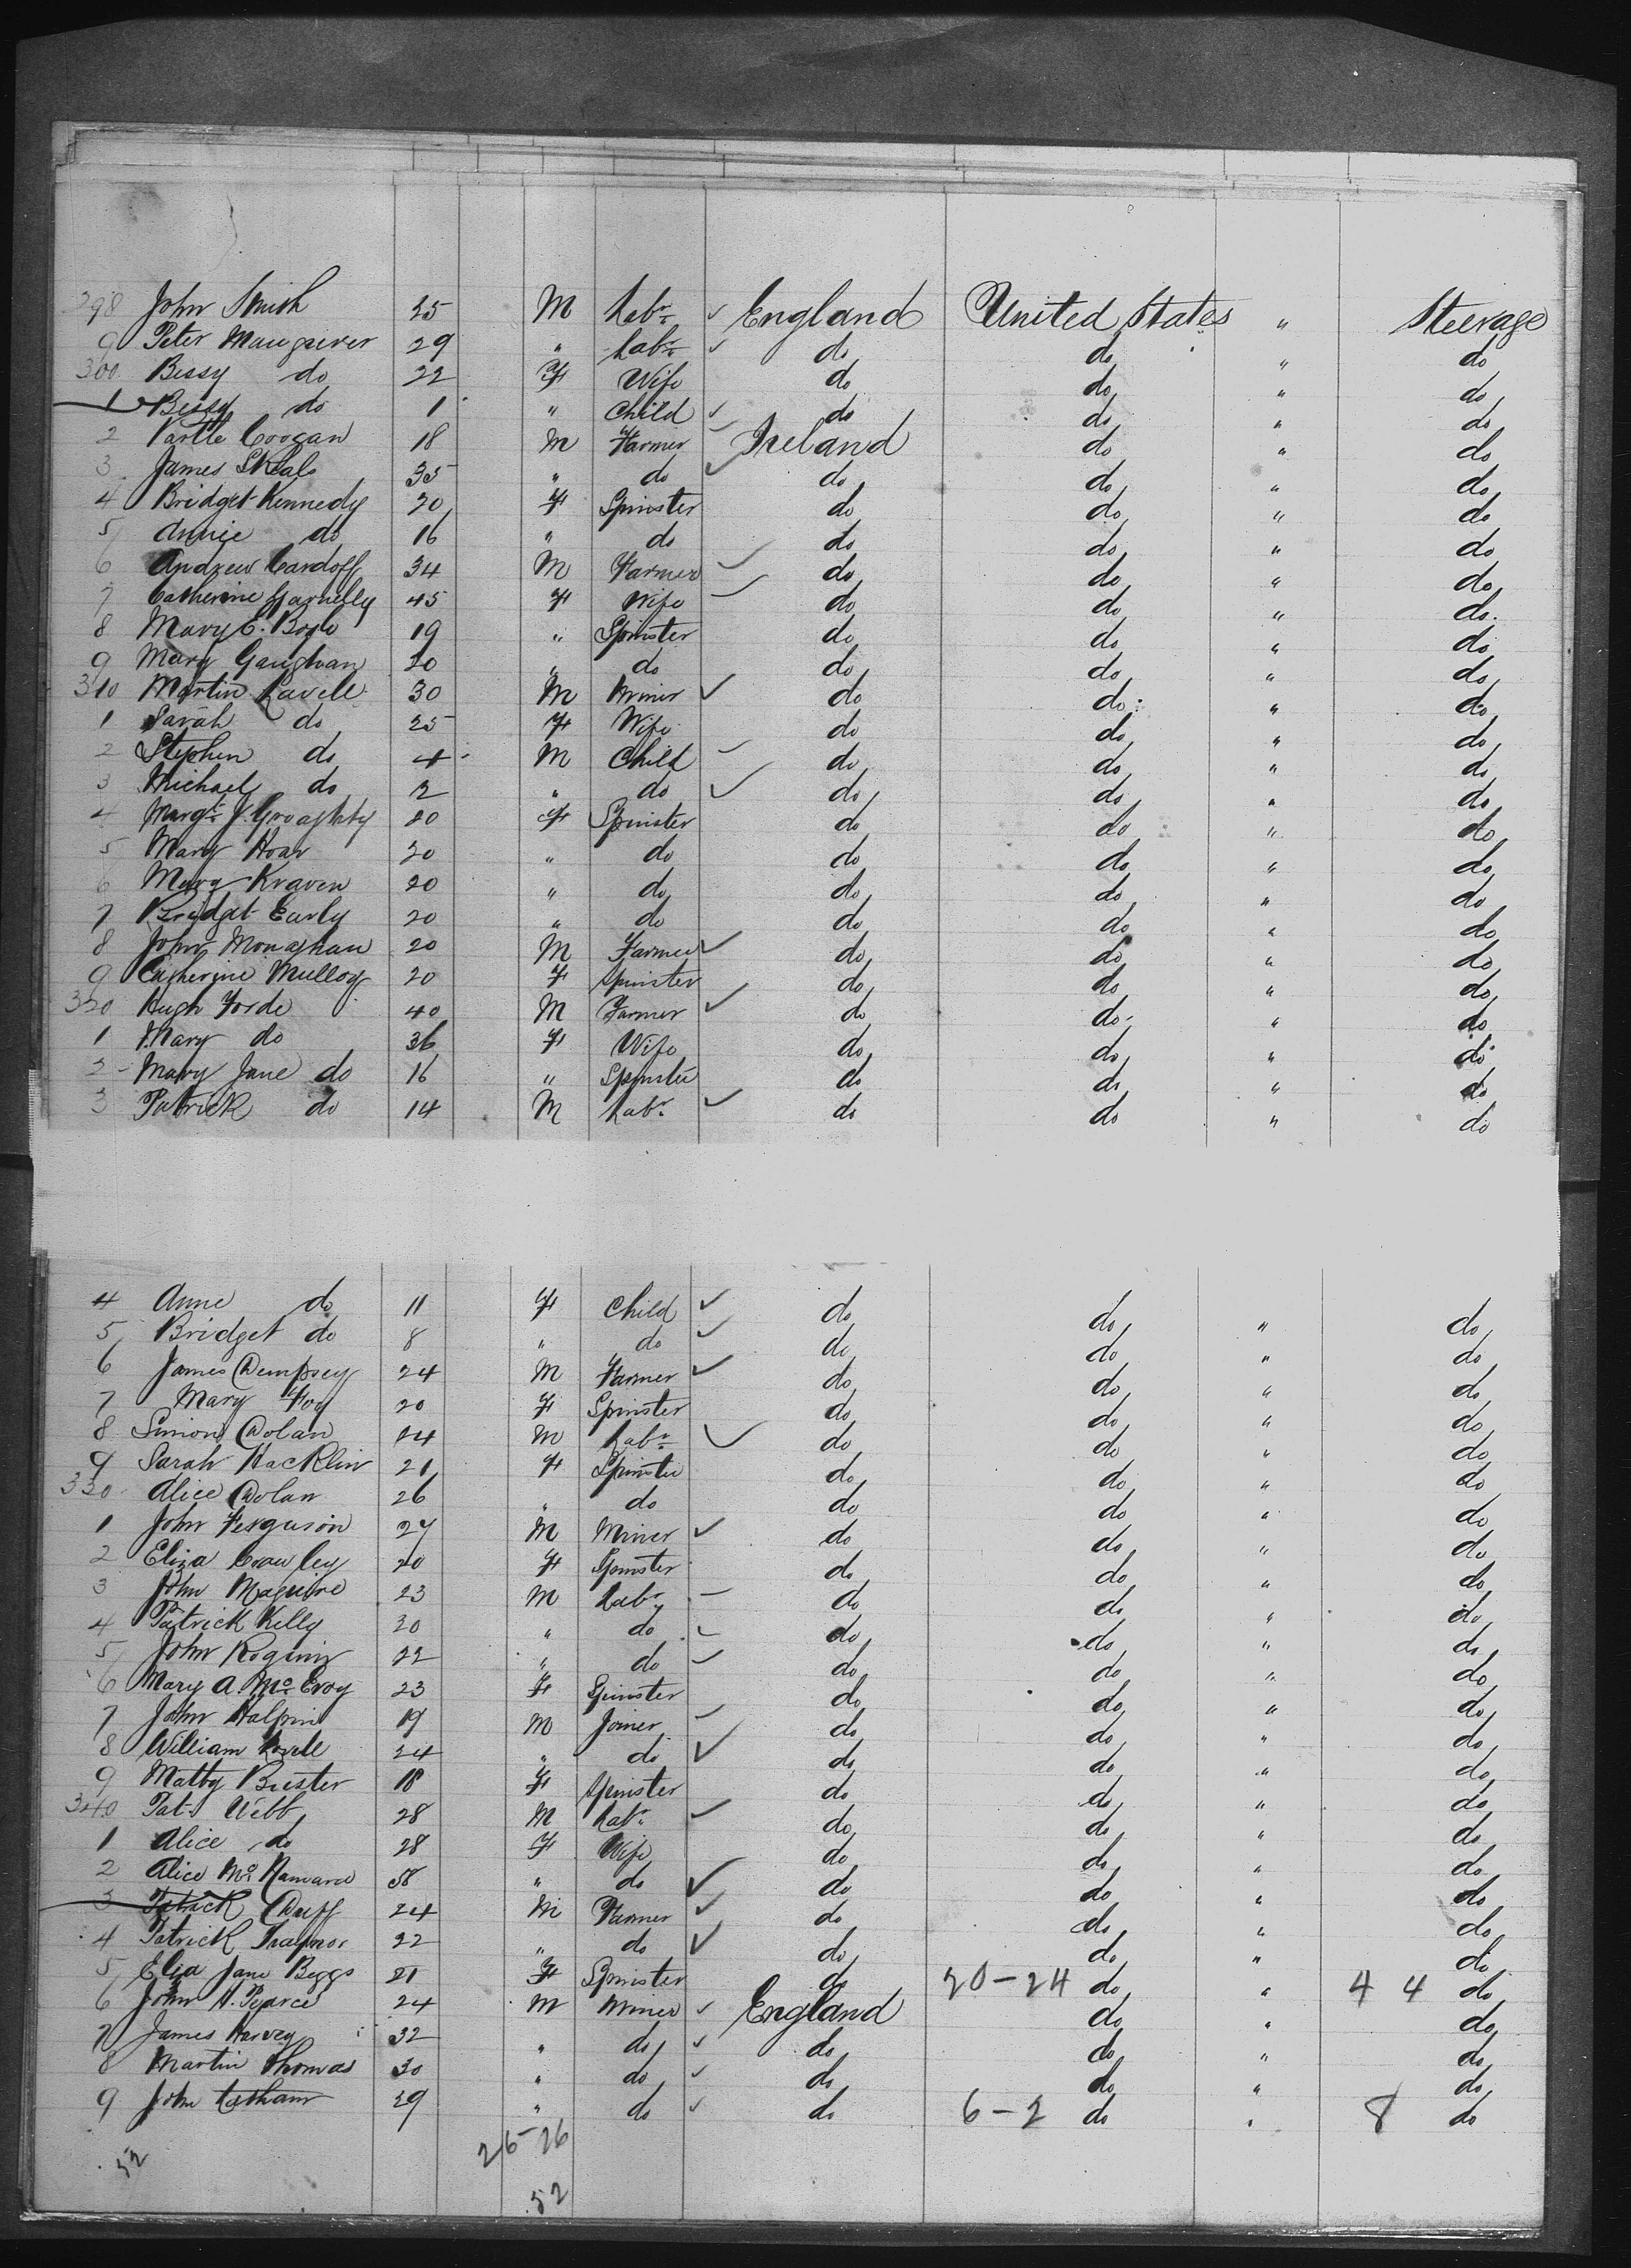 298 John Smith 25 M Labr ✓ England United States " Steerage
9 Peter Mauguirer 29 " Labr ✓ do do " do
300 Bessy do 22 F Wife do do " do
1 Bessy do 1 " Child ✓ do do " do
2 Coogan 18 M Farmer Ireland do " do
3 James 35 " do ✓ do do " do
4 Bridget Kennedy 20 F Spinster do do " do
5 Annie do 16 " do do do " do
6 Andrew Cardoff 34 M Farmer do do " do
7 Catherine 45 F Wife do do " do
8 Mary E. 19 " Spinster do do " do
9 Mary Gaughan 20 " do do do " do
310 Martin Lavell 30 M Miner ✓ do do " do
1 Sarah do 25 F Wife do do " do
2 Stephen do 4 M Child do do " do
3 Michael do 2 " do ✓ do do " do
4 Margt J. Groaghty 20 F Spinster do do " do
5 Mary Hoar 20 " do do do " do
6 Mary Kraven 20 " do do do " do
7 Bridget Early 20 " do do do " do
8 John Monaghan 20 M Farmer ✓ do do " do
9 Catherine Mulloy 20 F Spinster do do " do
320 Hugh Forde 40 M Farmer ✓ do do " do
1 Mary do 36 F Wife do do " do
2 Mary Jane do 16 " Spinster do do " do
3 Patrick do 14 M Labr ✓ do do " do
4 Anne do 11 F Child ✓ do do " do
5 Bridget do 8 " do ✓ do do " do
6 James Dempsey 24 M Farmer ✓ do do " do
7 Mary Foy 20 F Spinster do do " do
8 Simon Dolan 24 M Labr ✓ do do " do
9 Sarah Hacklin 21 F Spinster do do " do
330 Alice Dolan 26 " do do do " do
1 John Ferguson 27 M Miner ✓ do do " do
2 Eliza Crawley 20 F Spinster do do " do
3 John Maguire 23 M Labr do do " do
4 Patrick Kelly 30 " do do do " do
5 John 22 " do do do " do
6 Mary A. McEvoy 23 F Spinster do do " do
7 John Halpin 19 M Joiner do do " do
8 William 24 " do ✓ do do " do
9 Matty Buster 18 F Spinster do do " do
340 Pat. Webb 28 M Labr ✓ do do " do
1 Alice do 28 F Wife do do " do
2 Alice McNamara 58 " do ✓ do do " do
3 Patrick Duff 24 M Farmer ✓ do do " do
4 Patrick Traynor 22 " do ✓ do do " do
5 Eliza Jane Beggs 21 F Spinster do 20-24 do " 4 4 do
6 John H. Pearce 24 M Miner ✓ England do " do
7 James Harvey 32 " do ✓ do do " do
8 Martin Thomas 30 " do ✓ do do " do
9 John 29 " do ✓ do 6-2 do " 8 do
52 26 26
52